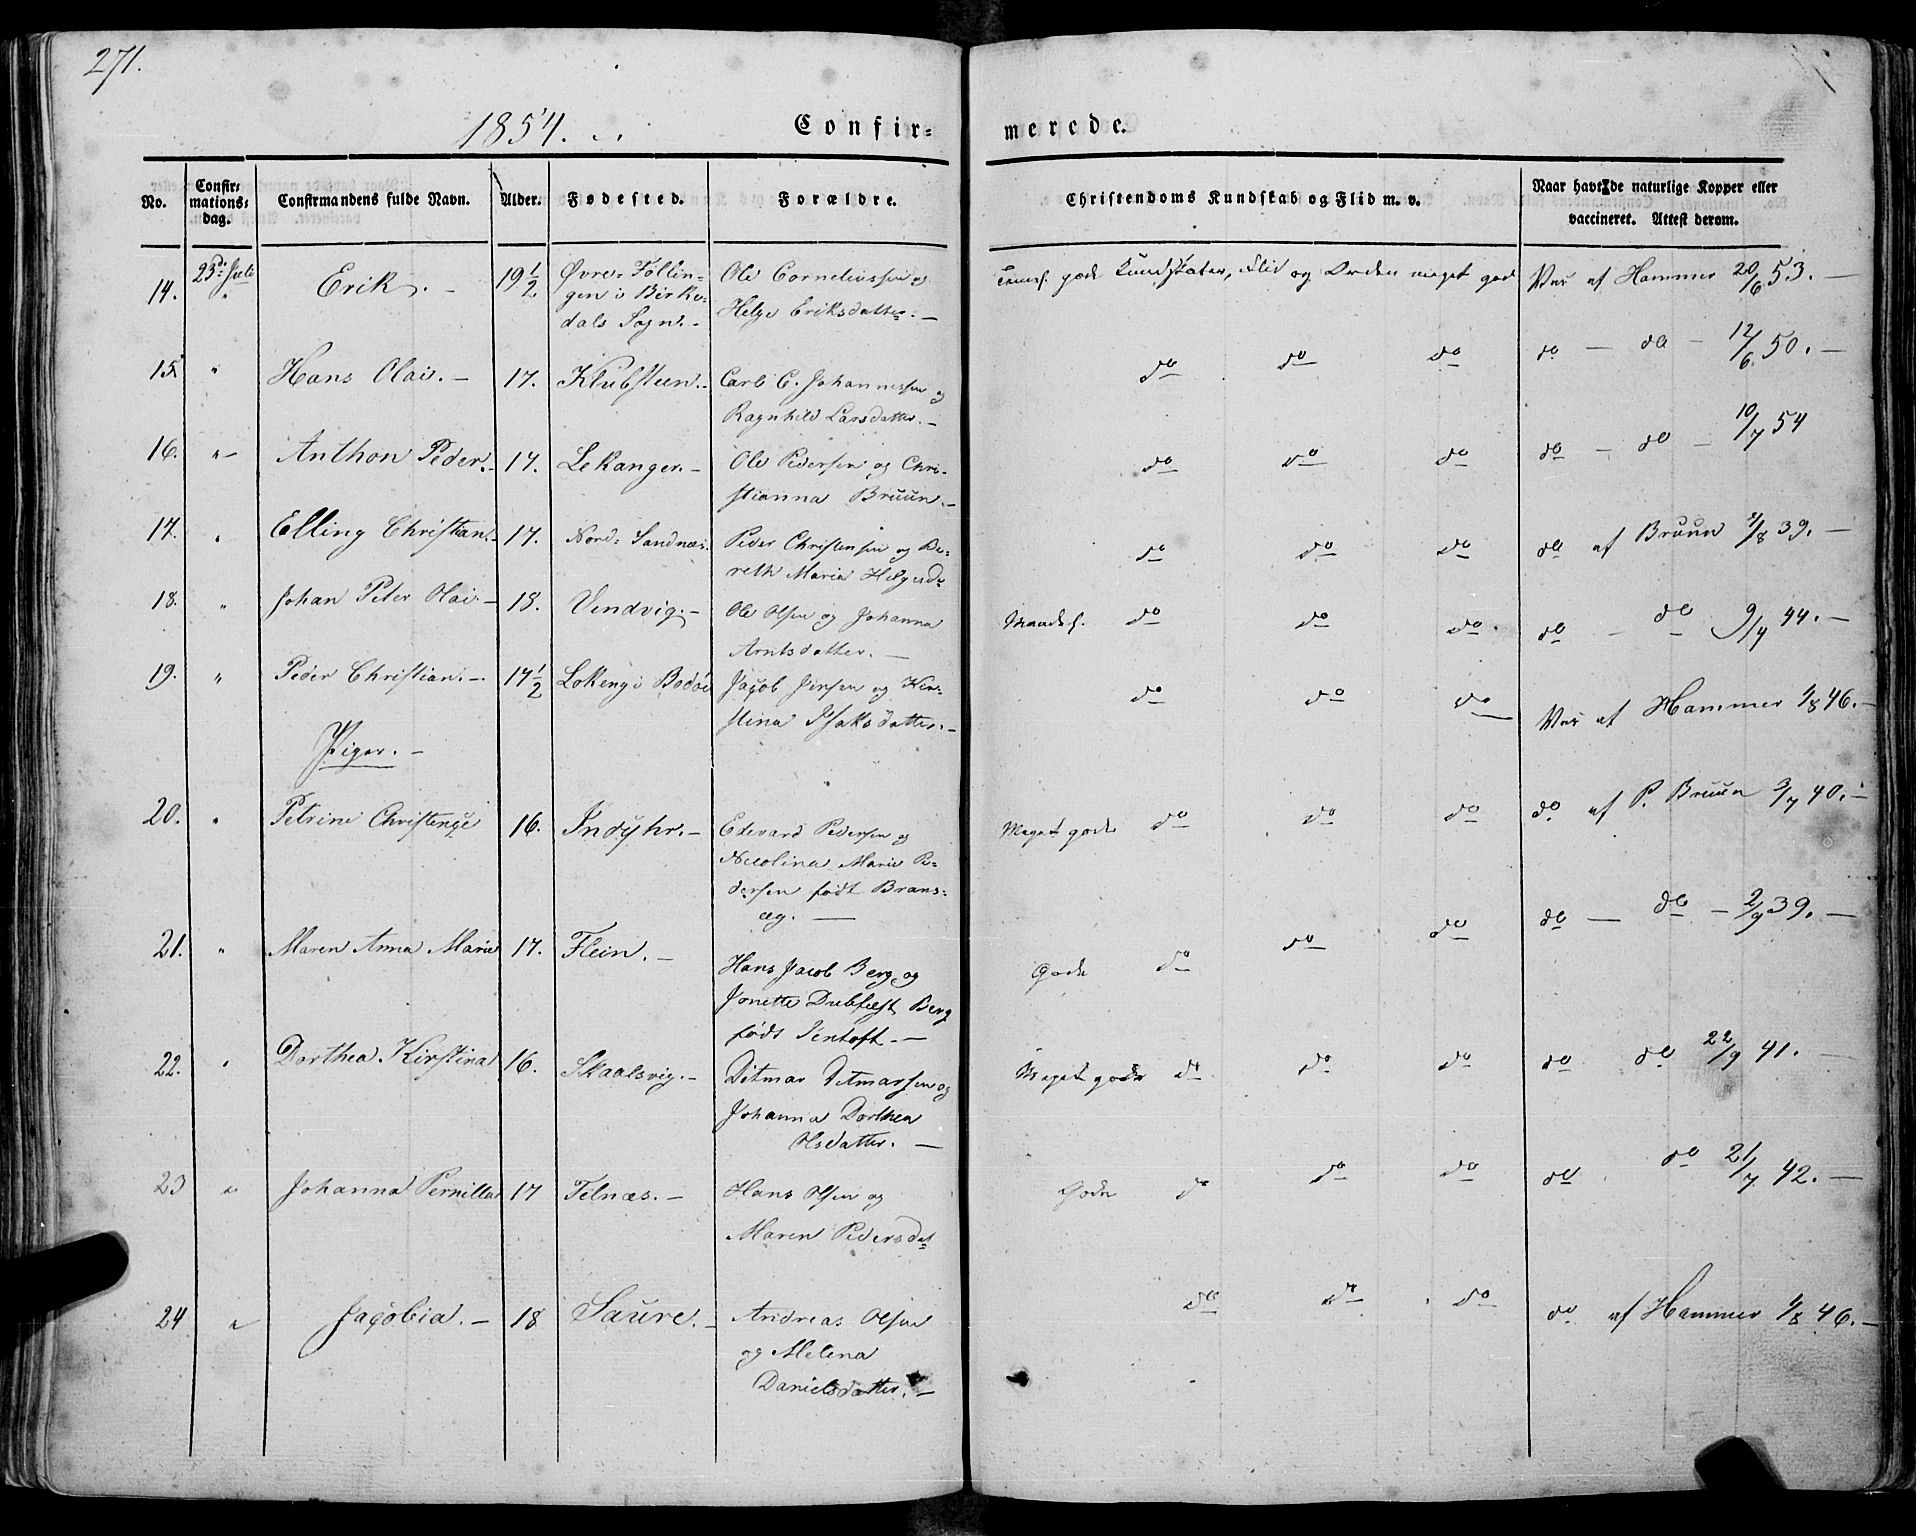 271.
1854.
Confir=
merede.
No.
Confir=
mations=
dag.
Confirmandens fulde Navn.
Alder.
Fødested.
Forældre.
Christendoms Kundskab og Flid m. v.
Naar havt de naturlige Kopper eller
vaccineret. Attest derom.
14. 23de Juli Erik. 19 1/2 Øvre Föllin-
gen i Birke-
dals Sogn.
Ole Corneliussen og
Helge Eriksdatter.
Temel. gode Kundskaber, Flid og Orden meget god
Vac af Hammer 20/6 53.
15. " Hans Olai. 17. Klubsteen.
Carl C. Johannessen og
Ragnhild Larsdatter.
do do do do do 12/6 50.
16. " Anthon Peder. 17. Lekanger.
Ole Pedersen og Chri-
stianna Bruun.
do do do do do 10/7 54
17. " Elling Christian. 17. Nord-Sandnæs.
Peder Christensen og Be-
reth Maria Helgesdr
do do do do af Bruun /8 39.
18. " Johan Peter Olai 18. Vendvig.
Ole Olsen og Johanna
Arntsdatter.
Maadel. do do do do do 9/9 44.
19. " Peder Christian. 14 1/2 Løkeng i Bodø
Jacob Jensen og Ker-
stina Isaksdatter.
do do do Vac af Hammer 1/8 46.
Piger.
20. " Petrine Christense 16. Indyhr.
Edevard Pedersen og
Nicolina Marie Pe-
dersen født Brans-
æg.
Meget gode do do do do af P. Bruun 3/7 40.
21. " Maren Anna Marie 17. Flein.
Hans Jacob Berg og
Jonette Dubfæst Berg
født Jentoft
Gode do do do do do 2/9 39.
22. " Dorthea Kirstina 16. Skaalsvig.
Ditmar Ditmarsen og
Johanna Dorthea
Olsdatter.
Meget gode do do do do do 22/9 41.
23 " Johanna Pernilla 17 Felnæs.
Hans Olsen og
Maren Pedersdat
Gode do do do do do 21/7 42.
24 " Jacobia. 18 Saure.
Andreas Olsen
og Melena
Danielsdatter.
do do do do af Hammer 1/8 46.